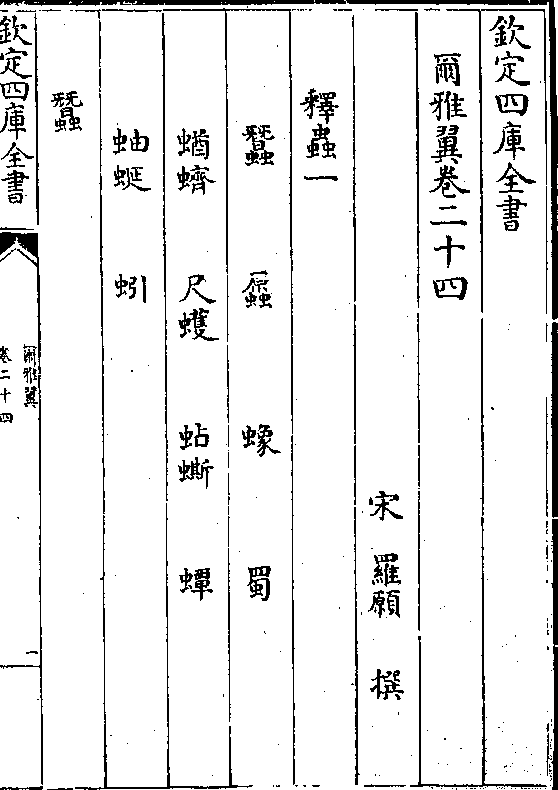 欽定四庫全書
爾雅翼卷二十四
宋 羅願 撰
釋蟲一
蠶 蟓 蜀
蝤蠐 尺蠖 蛅蟴 蟫
蚰蜒 蚓
蠶
欽定四庫全書
爾雅翼
卷二十四
一